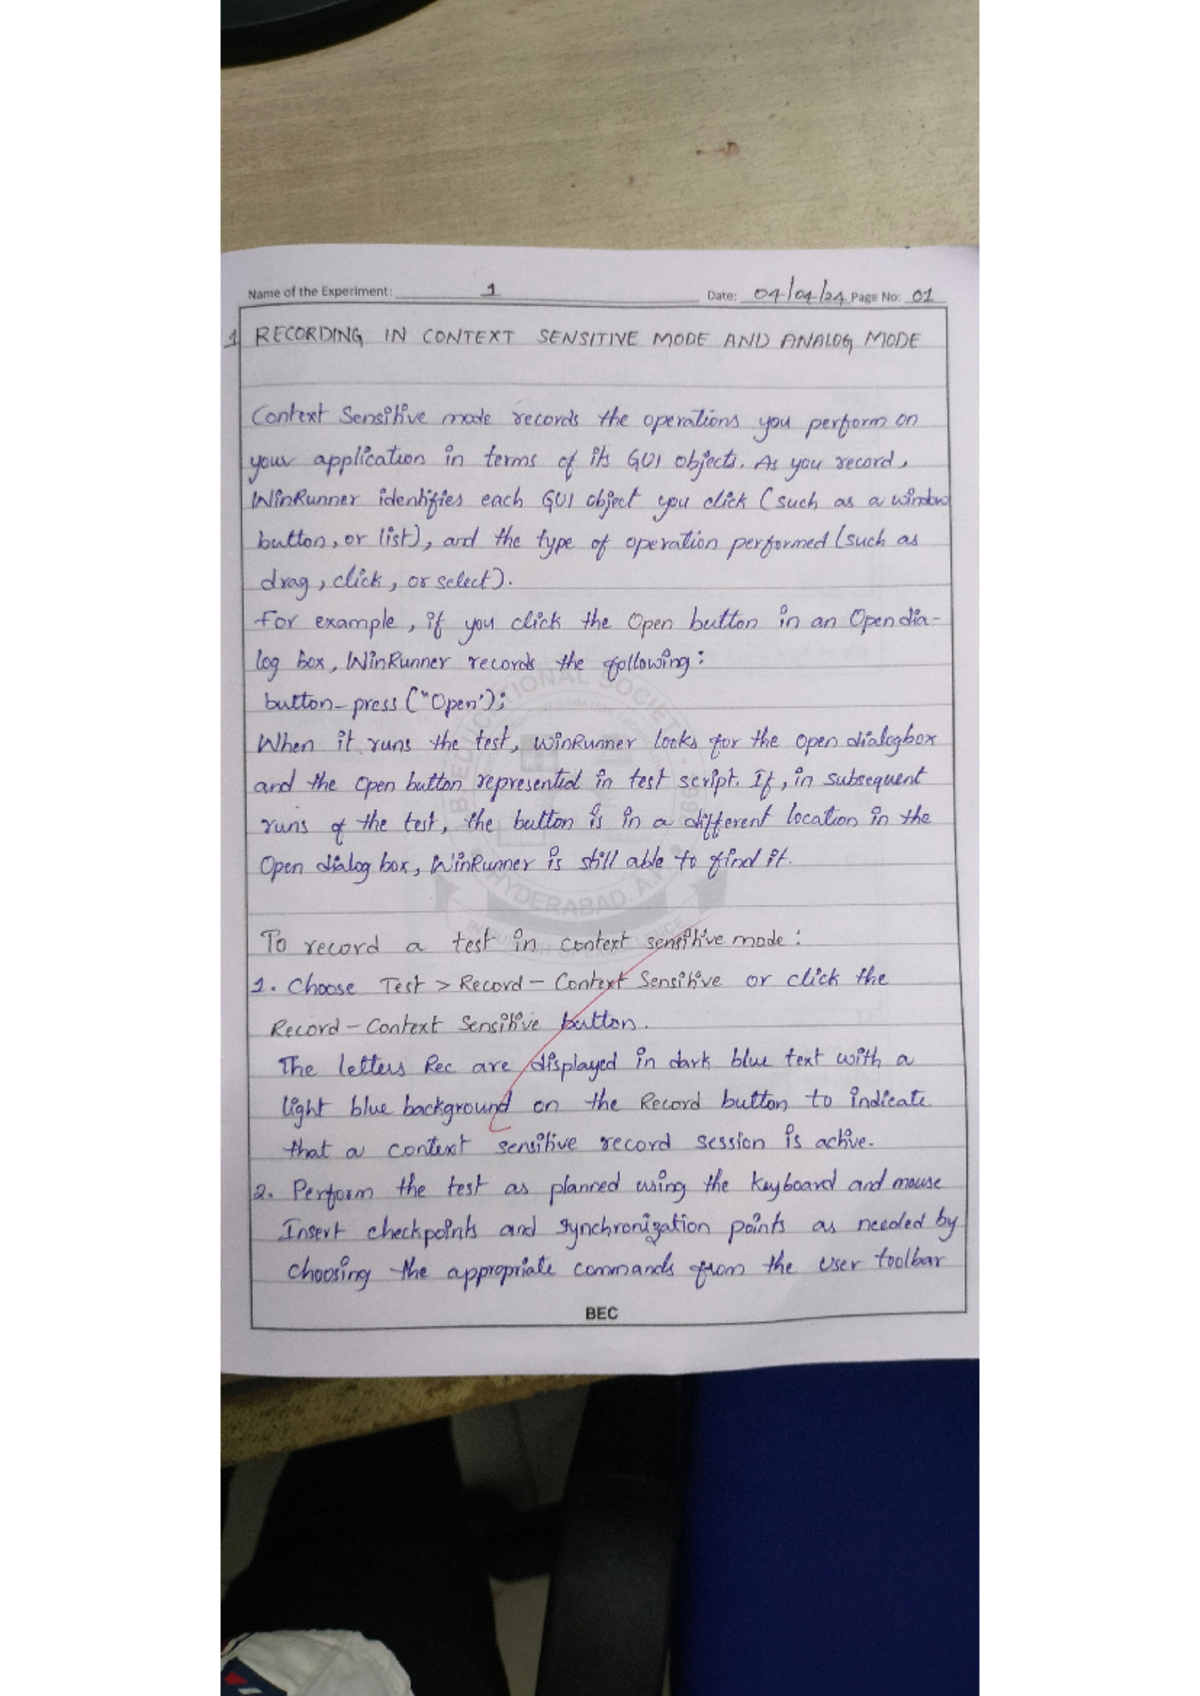 Name of the Experiment: 1 Date: 04/04/24 Page No: 01
1 RECORDING IN CONTEXT SENSITIVE MODE AND ANALOG MODE
Context Sensitive mode records the operations you perform on
your application in terms of its GUI objects. As you record,
WinRunner identifies each GUI object you click (such as a window
button, or list), and the type of operation performed (such as
drag, click, or select).
For example, if you click the Open button in an Open dia-
log box, WinRunner records the following:
button_press ("Open');
When it runs the test, WinRunner looks for the open dialogbox
and the Open button represented in test script. If, in subsequent
runs of the test, the button is in a different location in the
Open dialog box, WinRunner is still able to find it.
To record a test in context sensitive mode:
1. Choose Test > Record - Context Sensitive or click the
Record - Context Sensitive button.
The letters Rec are displayed in dark blue text with a
light blue background on the Record button to indicate
that a context sensitive record session is active.
2. Perform the test as planned using the keyboard and mouse
Insert checkpoints and synchronization points as needed by
choosing the appropriate commands from the User toolbar
BEC